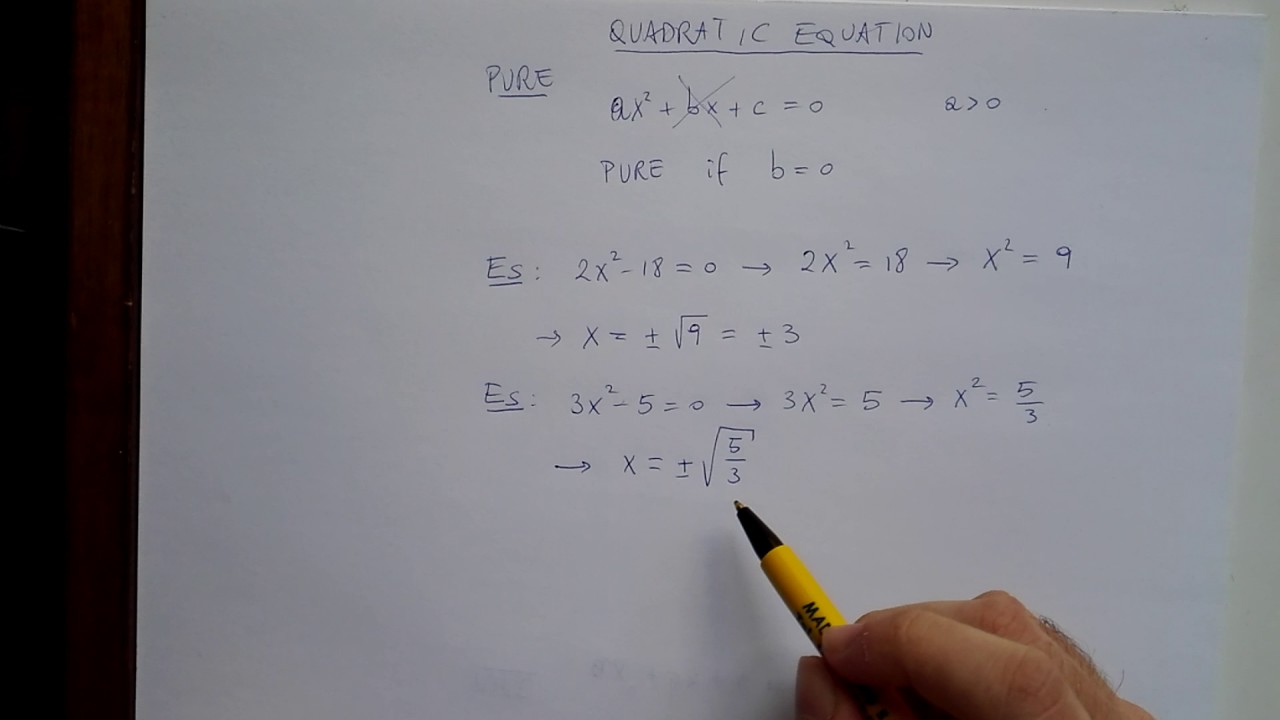 QUADRATIC EQUATION
PURE
ax² + bx + c = 0 a > 0
PURE if b = 0
Es: 2x² - 18 = 0 → 2x² = 18 → x² = 9
→ x = ± √9 = ± 3
Es: 3x² - 5 = 0 → 3x² = 5 → x² = 5/3
→ x = ± √5/3